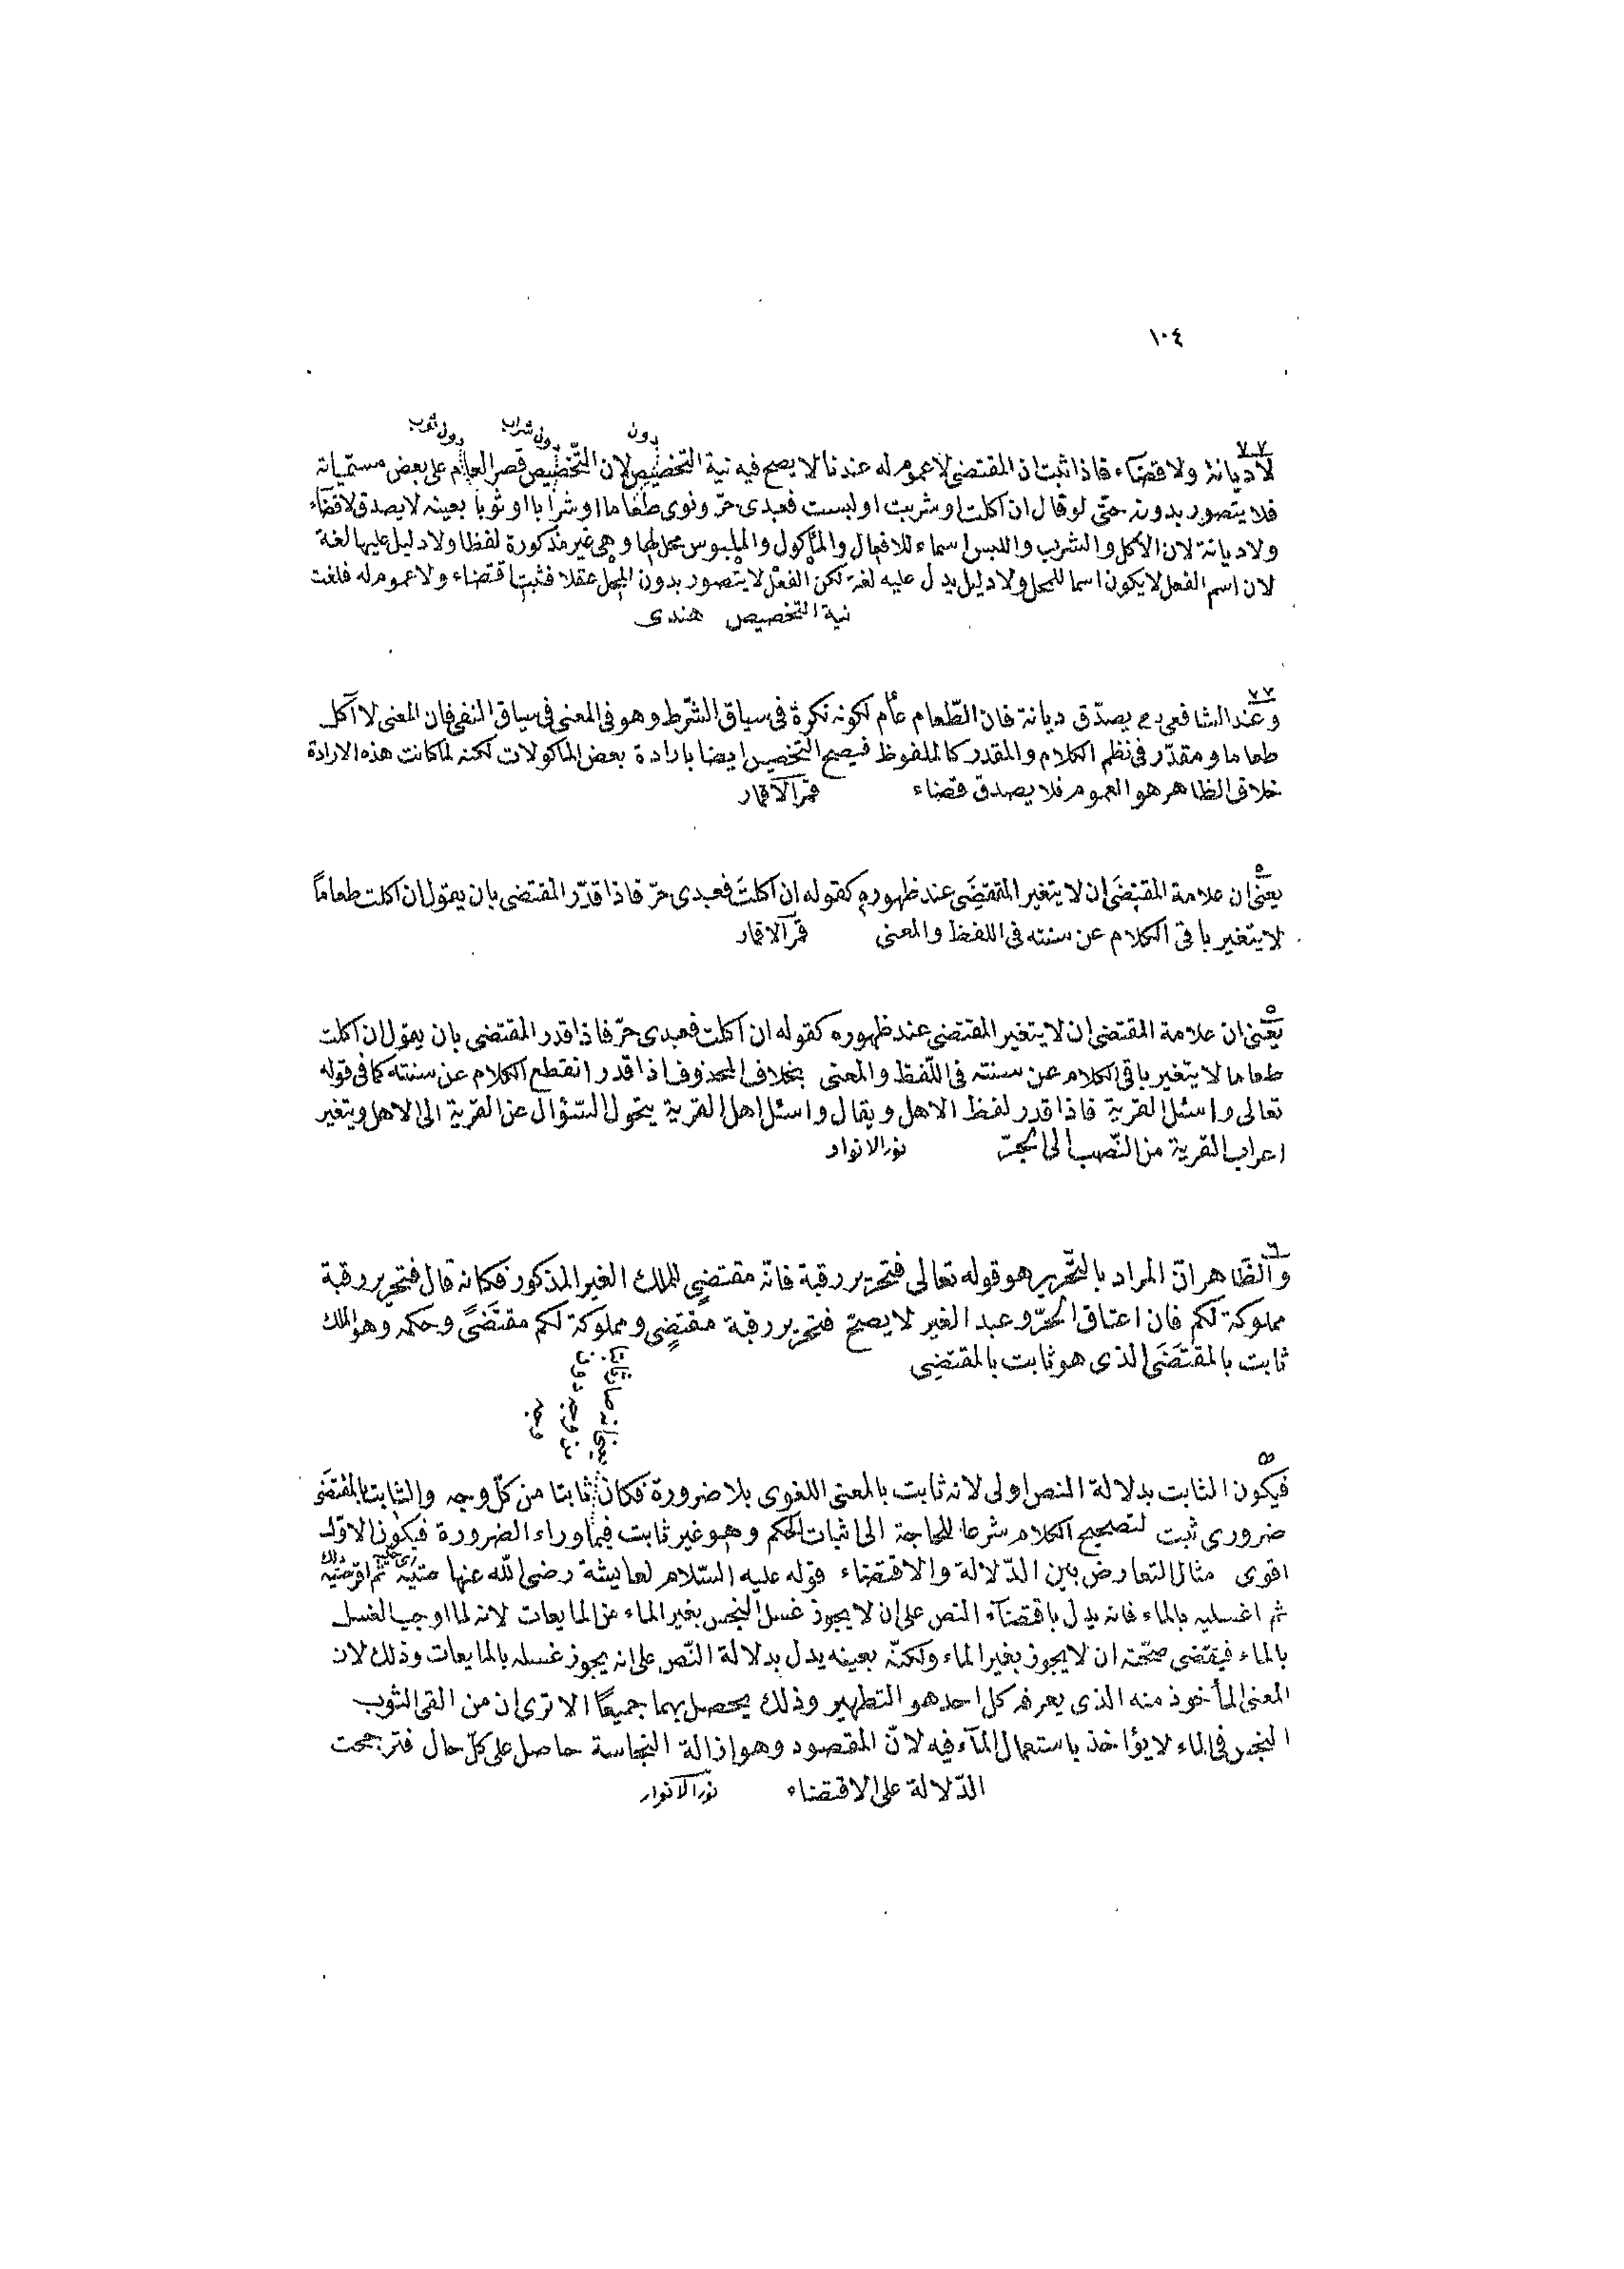 ١٠٤
دون
دون شراب
دون ثوب
٧٧
لا ديانة ولا قضاء فاذا ثبت ان المقتضى لا عموم له عندنا لا يصح فيه نية التخصيص لان التّخصيص قصر العام على بعض مسمّياته
فلا يتصور بدونه حتّى لو قال ان اكلت او شربت او لبست فعبدى حرّ ونوى طعاما او شرابا او ثوبا بعينه لا يصدق لا قضاء
ولا ديانة لان الاكل والشرب واللبس اسماء للافعال والمأكول والملبوس محل لها وهى غير مذكورة لفظا ولا دليل عليها لغة
لان اسم الفعل لا يكون اسما للمحل ولا دليل يدل عليه لغة لكن الفعل لا يتصور بدون المحل عقلا فثبت اقتضاء ولا عموم له فلغت
نية التخصيص هندى
٧٧
وعند الشافعى رح يصدّق ديانة فان الطّعام عام لكونه نكرة فى سياق الشّرط وهو فى المعنى فى سياق النفى فان المعنى لا آكل
طعاما ومقدّر فى نظم الكلام والمقدر كالملفوظ فيصح التخصيص ايضا بارادة بعض الماكولات لكنه لما كانت هذه الارادة
خلاف الظاهر هو العموم فلا يصدق قضاء قمر الاقمار
٥
يعنى ان علامة المقتضَى ان لا يتغير المقتضِى عند ظهوره كقوله ان اكلتَ فعبدى حرّ فاذا قدّر المقتضى بان يقول ان اكلت طعاماً
لا يتغير باقى الكلام عن سنته فى اللفظ والمعنى قمر الاقمار
٥
يعنى ان علامة المقتضى ان لا يتغير المقتضى عند ظهوره كقوله ان اكلت فعبدى حرّ فاذا قدر المقتضى بان يقول ان اكلت
طعاما لا يتغير باقى الكلام عن سنته فى اللّفظ والمعنى بخلاف المحذوف اذا قدر انقطع الكلام عن سنته كما فى قوله
تعالى واسئل القرية فاذا قدر لفظ الاهل ويقال واسئل اهل القرية يتحول السّؤال عن القرية الى الاهل ويتغير
اعراب القرية من النّصب الى الجرّ نور الانوار
٦
والظّاهر انّ المراد بالتّحرير هو قوله تعالى فتحرير رقبة فانّه مقتضٍى للملك الغير المذكور فكانه قال فتحرير رقبة
مملوكة لكم فان اعتاق الحرّ وعبد الغير لا يصحّ فتحرير رقبة مقتضٍى ومملوكة لكم مقتضًى وحكمه وهو الملك
ثابت بالمقتضَى الذى هو ثابت بالمقتضِى
يعنى انه صار ثابتا
من وجه دون
وجه
٥
فيكون الثابت بدلالة النص اولى لانه ثابت بالمعنى اللغوى بلا ضرورة فكان ثابتا من كلّ وجه والثابت بالمقتضَى
ضرورى ثبت لتصحيح الكلام شرعا للحاجة الى اثبات الحكم وهو غير ثابت فيما وراء الضرورة فيكون الاوّل
اقوى مثال التعارض بين الدّلالة والاقتضاء قوله عليه السّلام لعايشة رضى الله عنها حتّيه ثم اقرصيه
ثم اغسليه بالماء فانه يدل باقتضآء النص على ان لا يجوز غسل النجس بغير الماء من المايعات لانه لما اوجب الغسل
بالماء فيقتضى صحّته ان لا يجوز بغير الماء ولكنّه بعينه يدل بدلالة النّص على انه يجوز غسله بالمايعات وذلك لان
المعنى المأخوذ منه الذى يعرفه كل احد هو التطهير وذلك يحصل بهما جميعًا الا ترى ان من القى الثوب
النجس فى الماء لا يؤاخذ باستعمال المآء فيه لانّ المقصود وهو ازالة النجاسة حاصل على كلّ حال فترجحت
الدّلالة على الاقتضاء نور الانوار